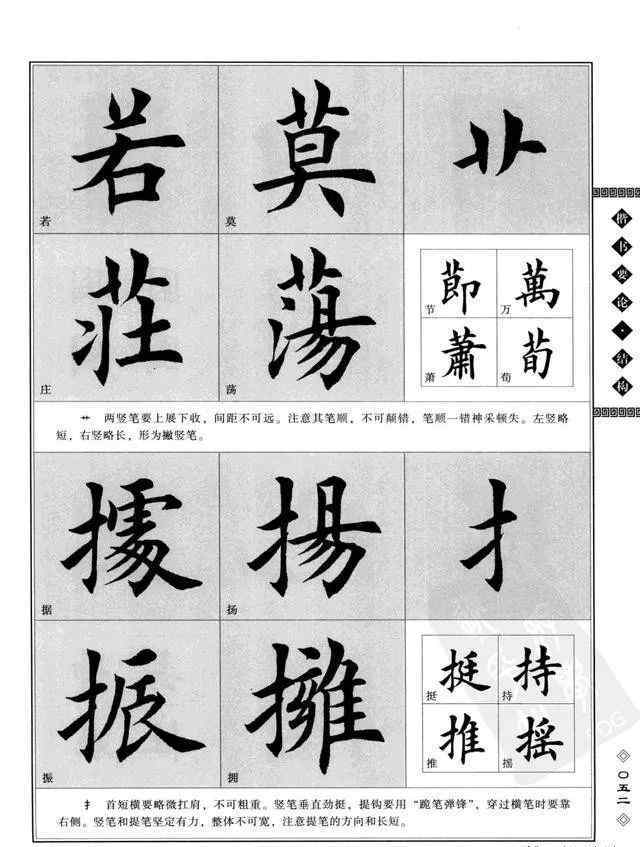 若 莫 艹
若 莫
荘 蕩 節 萬
节 万
蕭 荀
庄 荡 萧 荀
艹 两竖笔要上展下收，间距不可远。注意其笔顺，不可颠错，笔顺一错神采顿失。左竖略
短，右竖略长，形为撇竖笔。
據 揚 扌
据 扬
振 擁 挺 持
挺 持
推 摇
振 拥 推 摇
扌 首短横要略微扛肩，不可粗重。竖笔垂直劲挺，提钩要用“跪笔弹锋”，穿过横笔时要靠
右侧。竖笔和提笔坚定有力，整体不可宽，注意提笔的方向和长短。
楷书要论·结构
〇五二